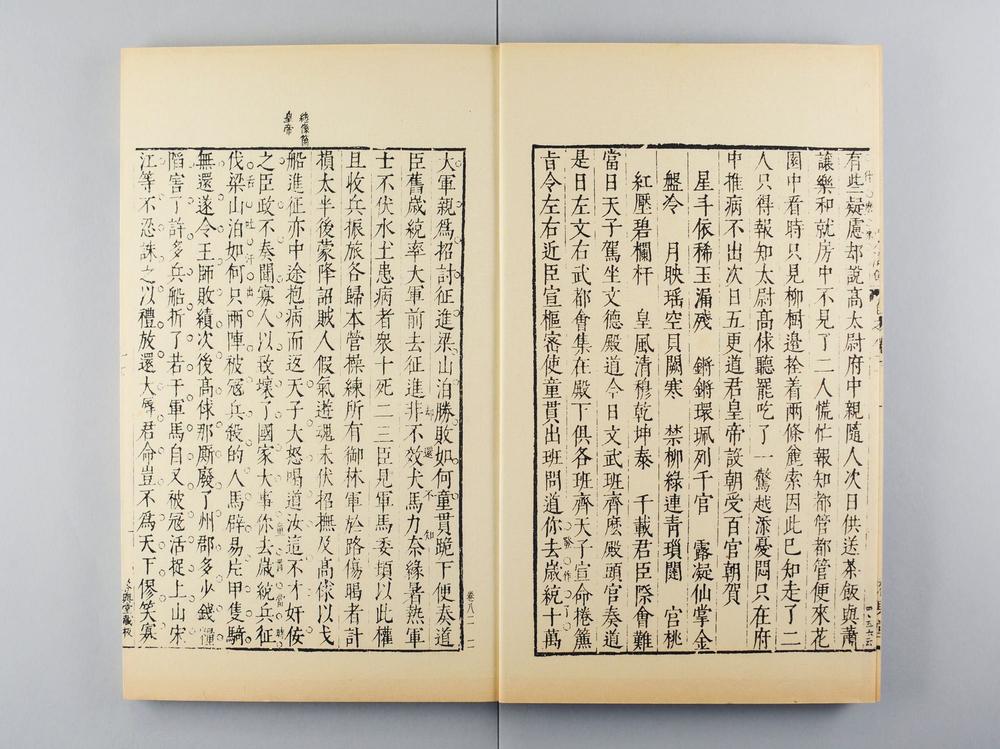 有些疑慮却說高太尉府中親隨人次日供送茶飯與蕭
讓樂和就房中不見了二人慌忙報知都管都管便來花
園中看時只見柳樹邊拴着兩條麄索因此已知走了二
人只得報知太尉高俅聽罷吃了一驚越添憂悶只在府
中推病不出次日五更道君皇帝設朝受百官朝賀
星斗依稀玉漏殘 鏘鏘環珮列千官 露凝仙掌金
盤冷 月映瑶空貝闕寒 禁柳綠連青瑣闥 宮桃
紅壓碧欄杆 皇風清穆乾坤泰 千載君臣際會難
當日天子駕坐文德殿道今日文武班齊麼殿頭官奏道
是日左文右武都會集在殿下俱各班齊天子宣命捲簾
旨令左右近臣宣樞密使童貫出班問道你去歲統十萬
發作了
卷八二
大軍親爲招討征進梁山泊勝敗如何童貫跪下便奏道
却還不知
臣舊歲統率大軍前去征進非不效犬馬力奈緣暑熱軍
士不伏水土患病者衆十死二三臣見軍馬委頓以此權
且收兵振旅各歸本營操練所有御林軍於路傷暍者計
損太半後蒙降詔賊人假氣遊魂未伏招撫及高俅以戈
船進征亦中途抱病而返天子大怒喝道汝這不才奸佞
之臣政不奏聞寡人以致壞了國家大事你去歲統兵征
伐梁山泊如何只兩陣被寇兵殺的人馬辟易片甲隻騎
無還遂令王師敗績次後高俅那厮廢了州郡多少錢糧
陷害了許多兵船折了若干軍馬自又被寇活捉上山宋
江等不恐誅之以禮放還大辱君命豈不爲天下僇笑寡
皇帝
容與堂藏板